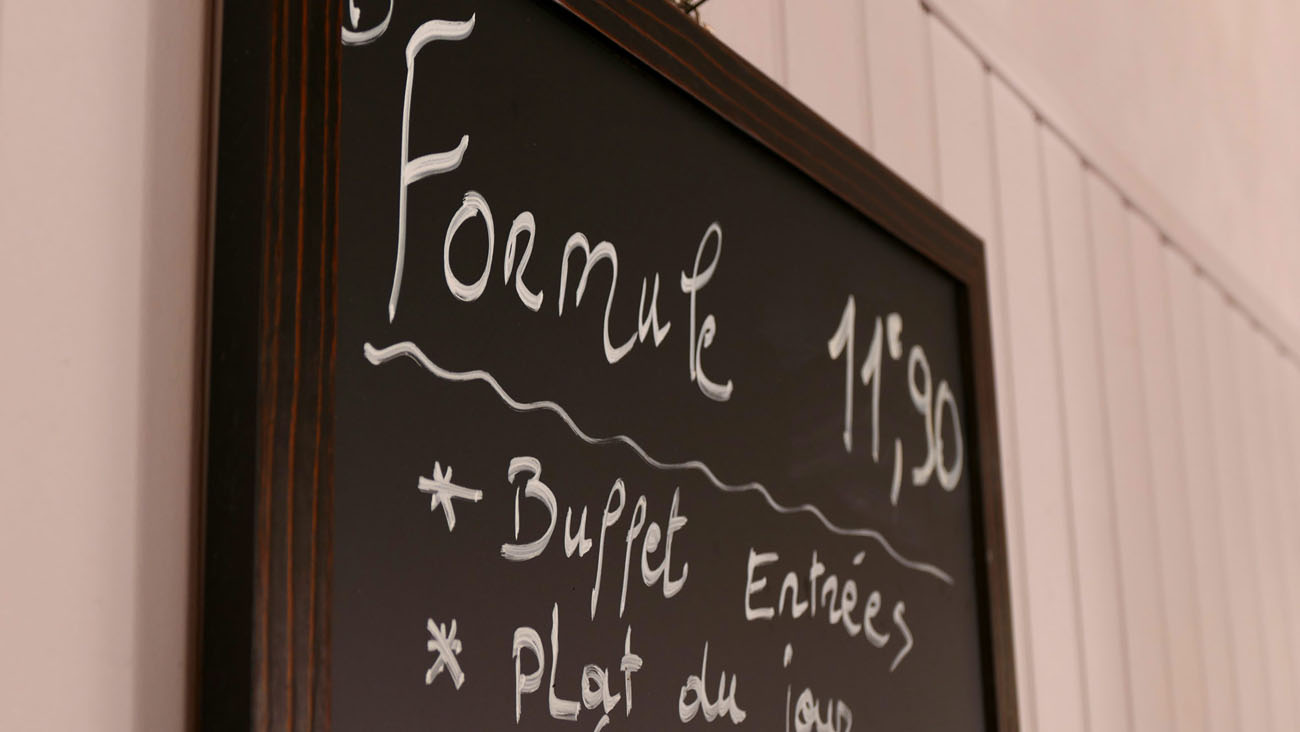 Formule 11€,90
* Buffet Entrées
* Plat du jour